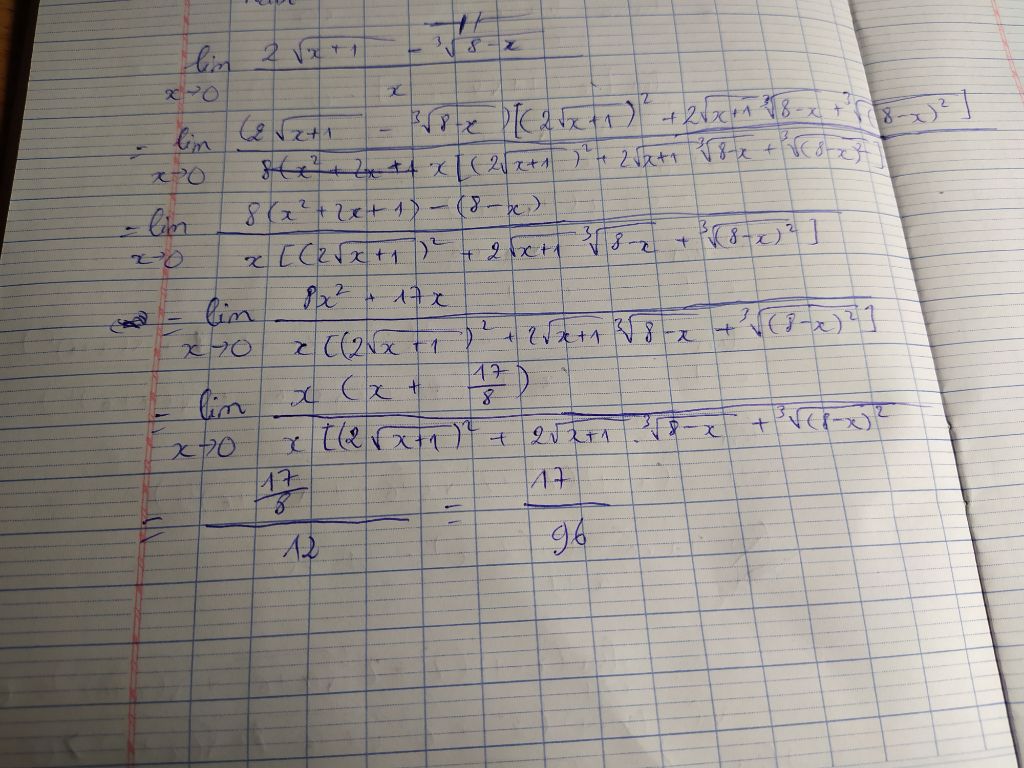 lim x→0 (2√(x+1) - ³√(8-x)) / x
= lim x→0 (2√(x+1) - ³√(8-x))[(2√(x+1))² + 2√(x+1) ³√(8-x) + ³√(8-x)²] / x[(2√(x+1))² + 2√(x+1) ³√(8-x) + ³√((8-x)²)]
= lim x→0 (8(x²+2x+1) - (8-x)) / x[(2√(x+1))² + 2√(x+1) ³√(8-x) + ³√((8-x)²)]
= lim x→0 (8x² + 17x) / x[(2√(x+1))² + 2√(x+1) ³√(8-x) + ³√((8-x)²)]
= lim x→0 x(x + 17/8) / x[(2√(x+1))² + 2√(x+1) . ³√(8-x) + ³√(8-x)²
= (17/8) / 12 = 17/96